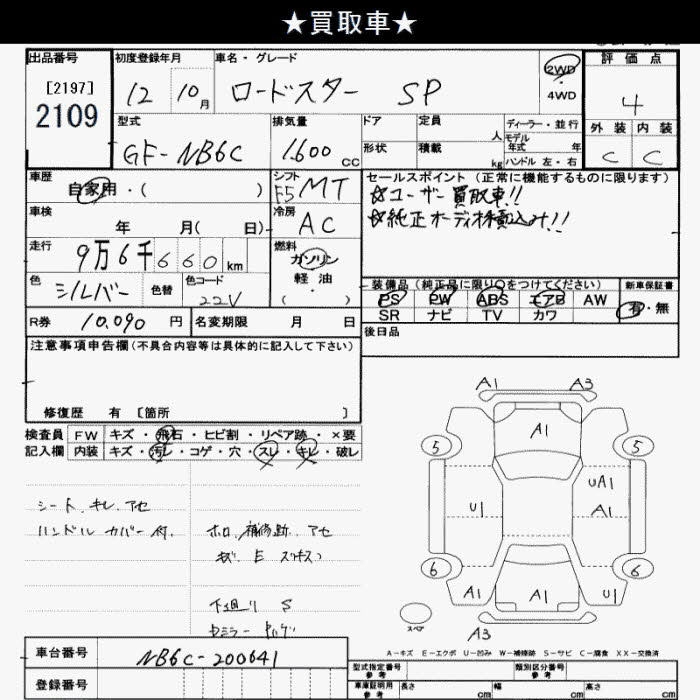 ★買取車★
出品番号
[2197]
2109
初度登録年月
12 10月
車名・グレード
ロードスター SP
2WD
・
4WD
評価点
4
型式
GF-NB6C
排気量
1.600 cc
ドア
定員
人
形状
積載
kg
ディーラー・並行
モデル
年式 年
ハンドル 左・右
外装 内装
C C
車歴
自家用・( )
シフト
F5 MT
セールスポイント(正常に機能するものに限ります)
☆ユーザー買取車!!
☆純正オーディオ積込み!!
車検
年 月( 日)
冷房
AC
走行
9万6千660km
燃料
ガソリン
軽油
・( )
色
シルバー
色替
色コード
22V
装備品(純正品に限り○をつけてください)
新車保証書
PS PW ABS エアB AW
SR ナビ TV カワ
有・無
R券 10.090 円
名変期限 月 日
後日品
注意事項申告欄(不具合内容等は具体的に記入して下さい)
修復歴 有 [箇所 ]
検査員
記入欄
FW キズ・飛石・ヒビ割・リペア跡・×要
内装 キズ・汚レ・コゲ・穴・スレ・キレ・破レ
シート、キレ、アセ
ハンドルカバー付.
ホロ、補修跡、アセ
キズ E
下廻り S
A1 A3
A1
5 5
UA1
U1 A1
6 6
A1 A1 U1
スペア
A3
A-キズ E-エクボ U-凹み W-補修跡 S-サビ C-腐食 XX-交換済
車台番号
NB6C-200641
登録番号
型式指定番号
参考
類別区分番号
参考
車庫証明用
参考
長さ cm
幅 cm
高さ cm